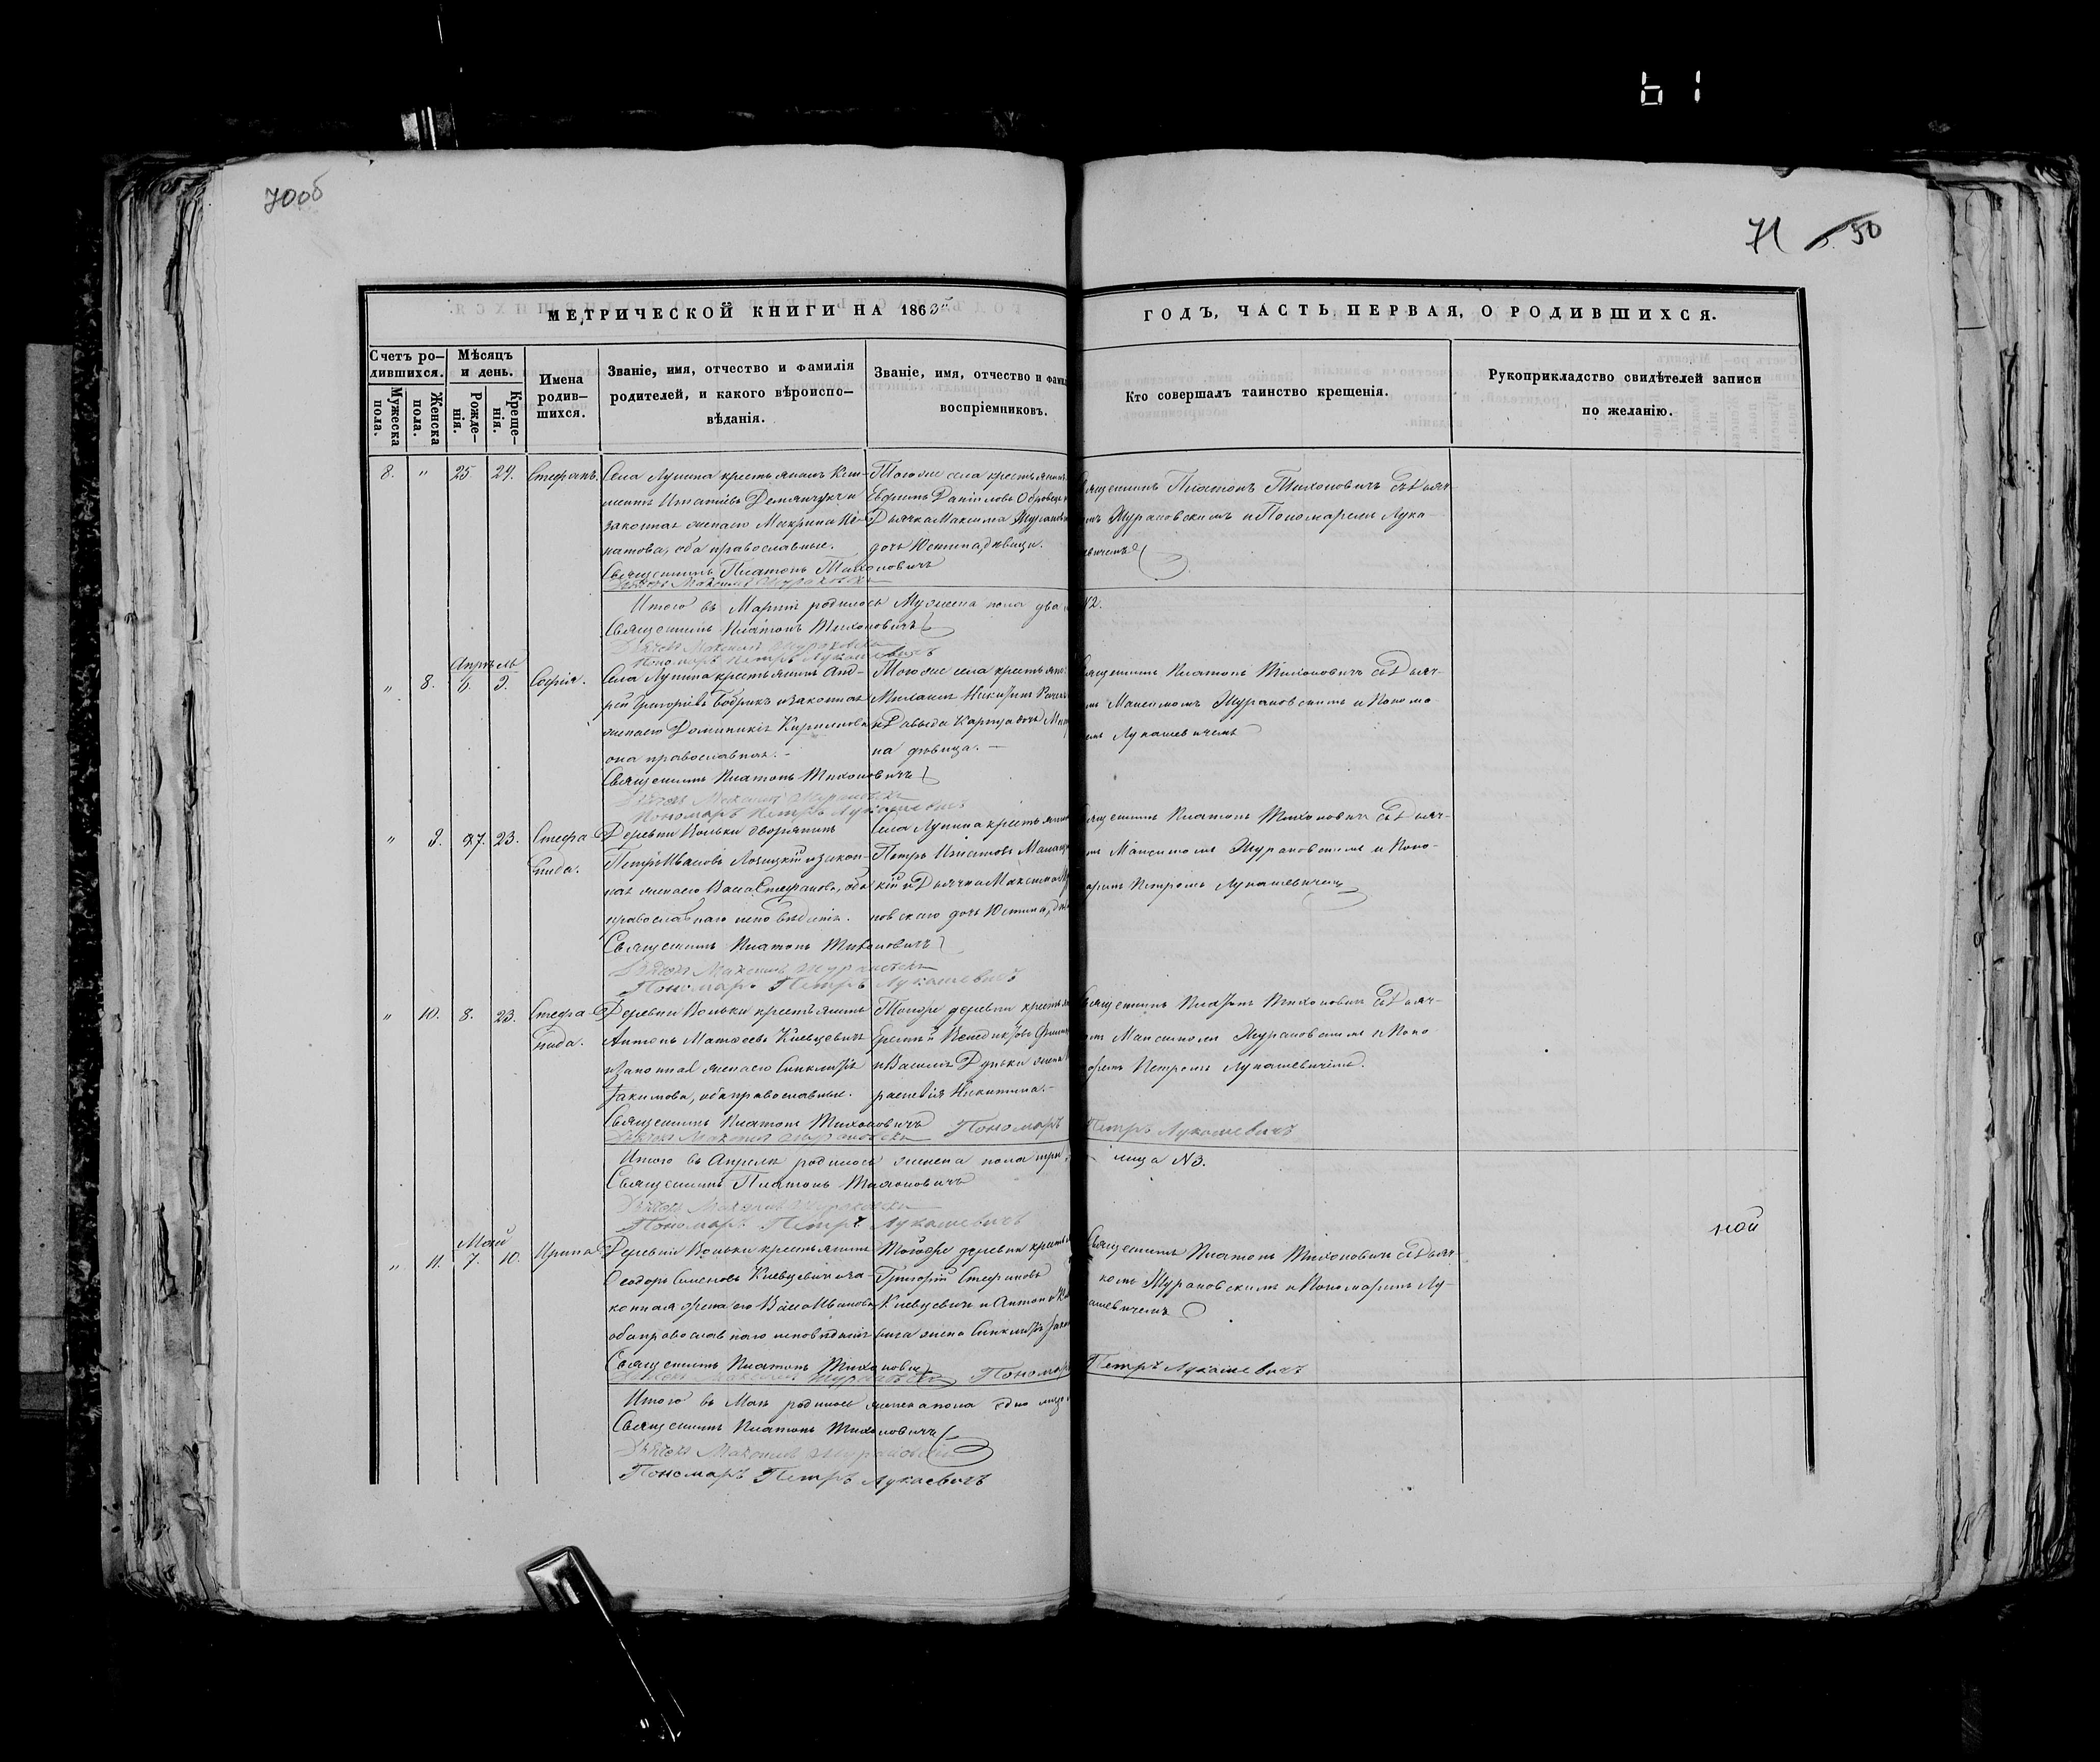 70об
71 50
МЕТРИЧЕСКОЙ КНИГИ НА 1863й
ГОДЪ, ЧАСТЬ ПЕРВАЯ, О РОДИВШИХСЯ.
Счетъ ро-
дившихся.
Мѣсяцъ
и день.
Мужеска
пола.
Женска
пола.
Рожде-
нія.
Креще-
нія.
Имена
родив-
шихся.
Званіе, имя, отчество и фамилія
родителей, и какого вѣроиспо-
вѣданія.
Званіе, имя, отчество и фами
воспріемниковъ.
Кто совершалъ таинство крещенія.
Рукоприкладство свидѣтелей записи
по желанію.
8. " 25 29. Стефанъ.
Села Лунина крестьянинъ Кли-
ментъ Игнатіевъ Демянчукъ и
законная жена его Макрина
натова, оба православные.
Священникъ Платонъ Тихоновичъ
Дьячекъ Максимъ Жураковскій
Того же села крестьянинъ
Евфимъ Даніиловъ
Дьячка Максима
дочь Юстина, дѣвица.
Платонъ Тихоновичъ съ Дьяч-
Жураковскимъ и Пономаремъ Лука-
Итого въ Мартѣ родилось Мужеска пола два
№2.
Священникъ Платонъ Тихоновичъ
Дьячекъ Максимъ Жураковскій
Пономарь Петръ Лукашевичъ
Апрѣль
" 8. 6. 9. Софія.
Села Лунина крестьянинъ Анд-
рей Григоріевъ Бобрикъ и законная
жена его Доминикія Кириллова
она православная.
Священникъ Платонъ Тихоновичъ
Дьячекъ Максимъ Жураковскій
Пономарь Петръ Лукашевичъ
Того же села крестьянинъ
Михаилъ Никитинъ
и Давыда Карпца дочь
на дѣвица.
Платонъ Тихоновичъ съ Дьяч-
Максимомъ Жураковскимъ и Поно мо
Лукашевичемъ
" 9. 27. 23. Стефа-
нида.
Деревни Вольки дворянинъ
Петръ Ивановъ Лозицкій и закон-
ная жена его Васа Стефанова, оба
православнаго исповѣданія.
Священникъ Платонъ Тихоновичъ
Дьячекъ Максимъ Жураковскій
Пономарь Петръ Лукашевичъ
Села Лунина крестьянинъ
Петръ Игнатовъ
кій и Дьячка Максима
новскаго дочь Юстина,
Платонъ Тихоновичъ съ Дьяч-
Максимомъ Жураковскимъ и Поно-
Петромъ Лукашевичемъ
" 10. 8. 23. Стефа-
нида.
Деревни Вольки крестьянинъ
Антонъ Матѳеевъ Киевцевичъ
и законная жена его Синклитія
Іакимова, оба православные.
Священникъ Платонъ Тихоновичъ
Дьячекъ Максимъ Жураковскій
Той же деревни
Никитина.
Пономарь Петръ Лукашевичъ
Платонъ Тихоновичъ съ Дьяч-
Максимомъ Жураковскимъ и Поно
Петромъ Лукашевичемъ.
Итого въ Апрелѣ родилось женска пола три
лица №3.
Священникъ Платонъ Тихоновичъ
Дьячекъ Максимъ Жураковскій
Пономарь Петръ Лукашевичъ
ной
Май
" 11. 7. 10. Ирина
Деревни Вольки крестьянинъ
Ѳеодоръ Симеоновъ Киевцевичъ и за-
конная жена его Васа Иванова
оба православнаго исповѣданія
Священникъ Платонъ Тихоновичъ
Дьячекъ Максимъ Жураковскій
Той же деревни
Григорій Стефановъ
Киевцевичъ и Антона
вича жена Синклитія
Пономарь Петръ Лукашевичъ
Священникъ Платонъ Тихоновичъ съ Дьяч-
комъ Жураковскимъ и Пономаремъ Лу-
кашевичемъ
Итого въ Маѣ родилось женска пола едно лицо
Священникъ Платонъ Тихоновичъ
Дьячекъ Максимъ Жураковскій
Пономарь Петръ Лукаевичъ